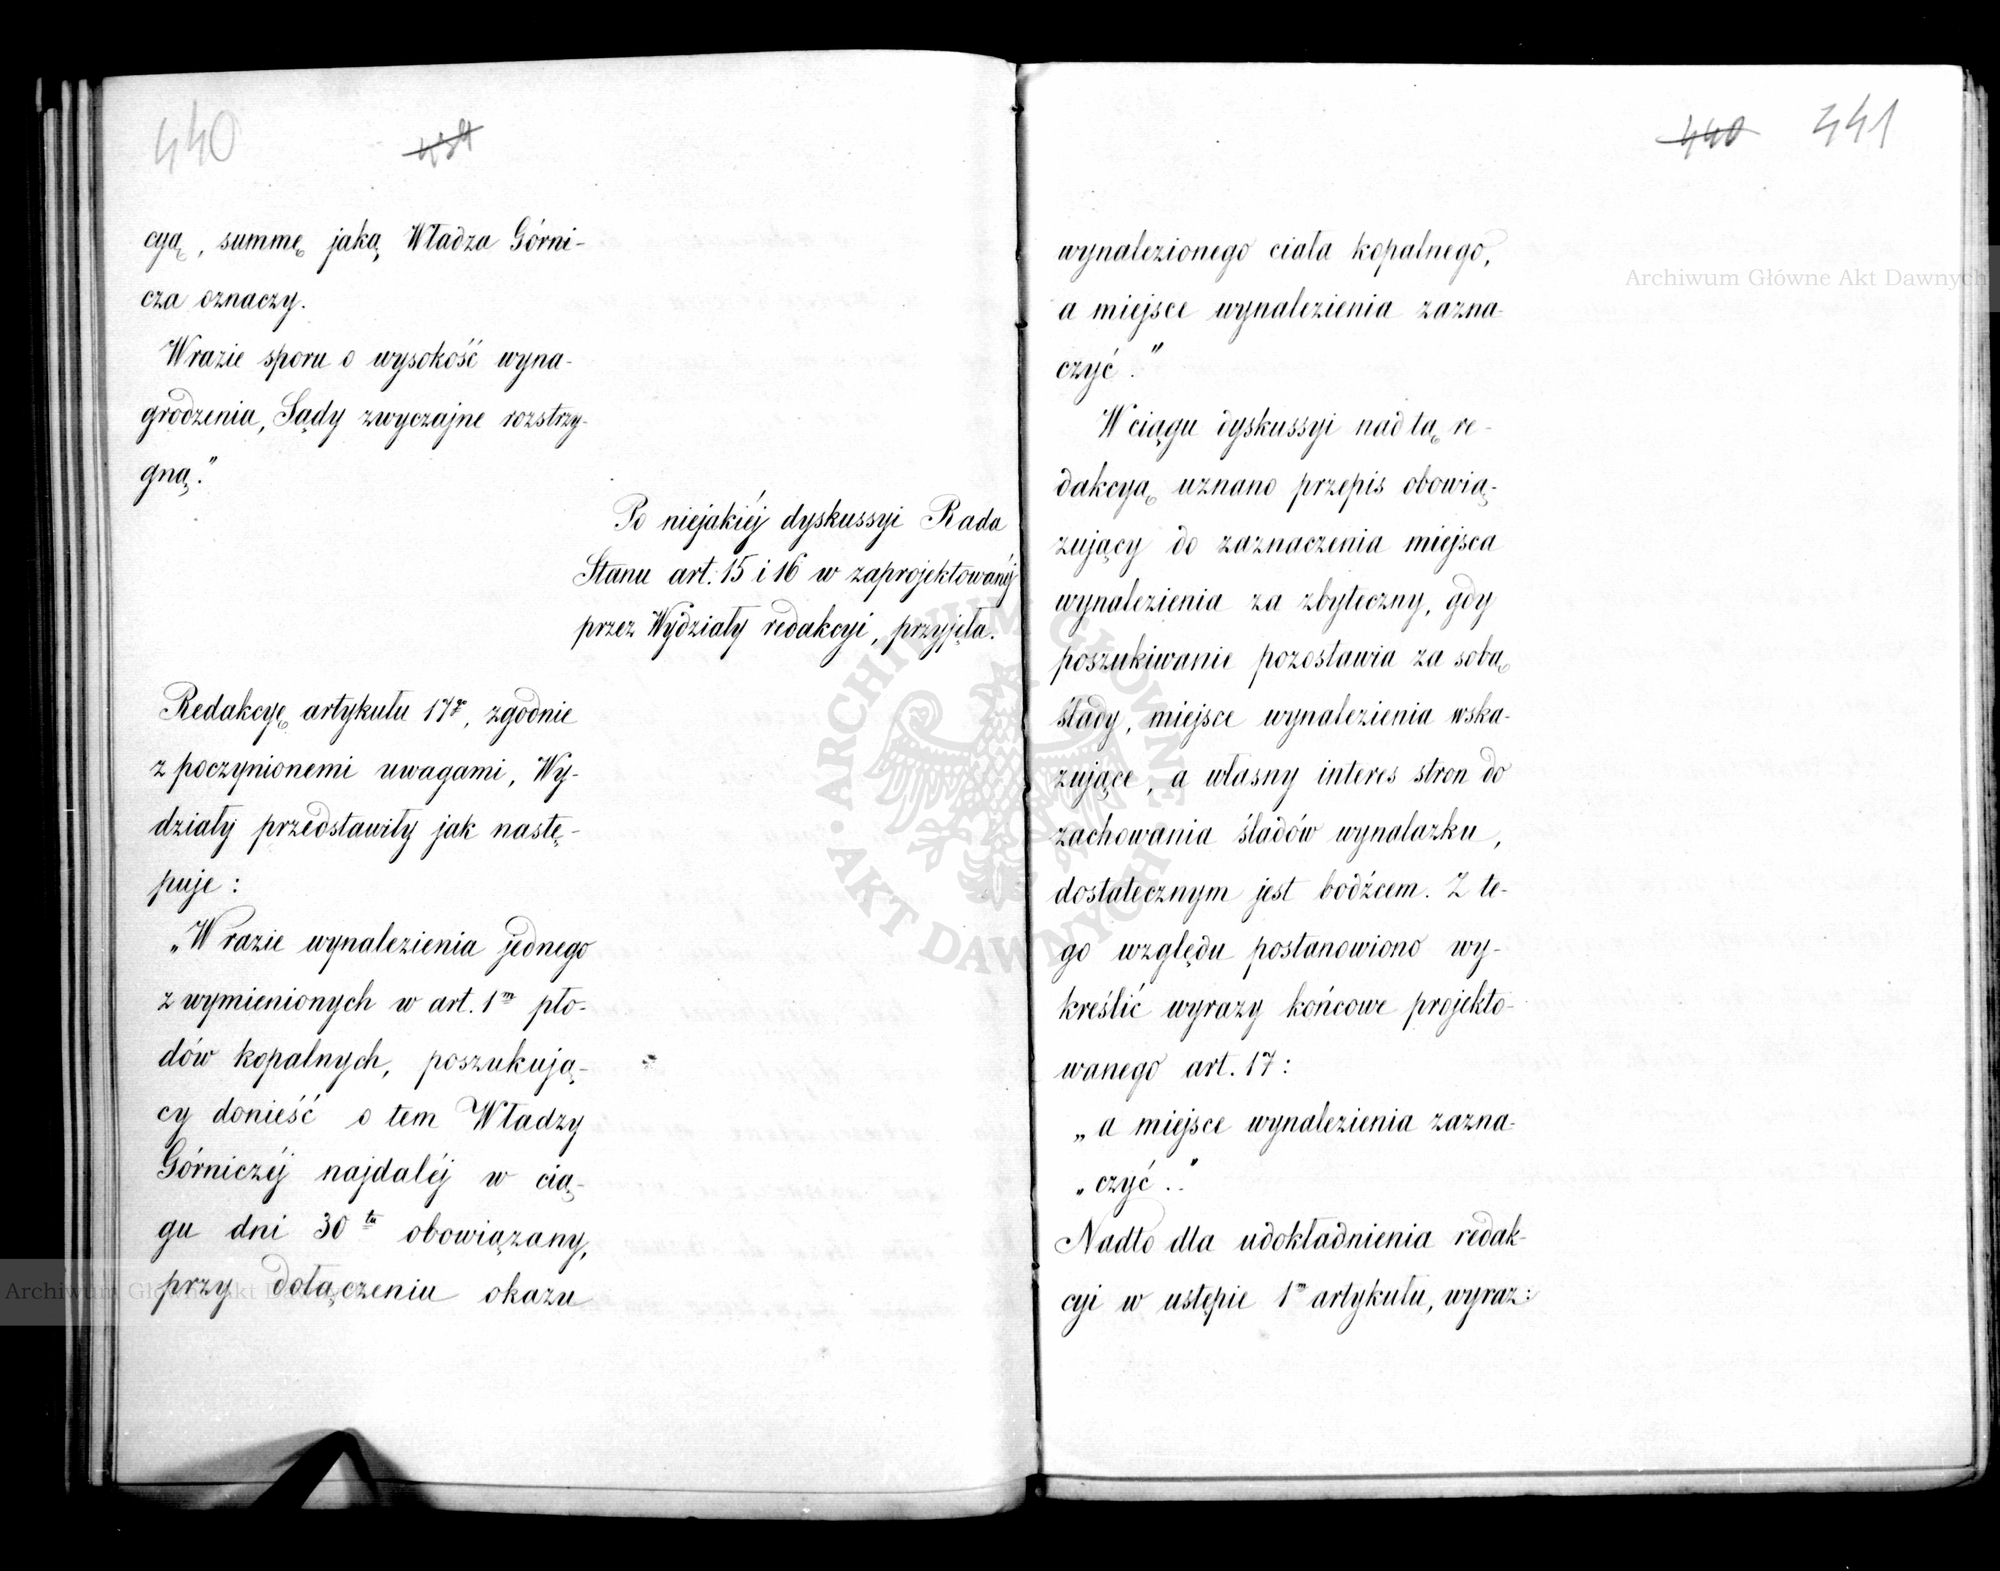 440
cyą, summę jaką Władza Górni-
cza oznaczy.
W razie sporu o wysokość wyna-
grodzenia, Sądy zwyczajne rozstrzy-
gną."
Po niejakiéj dyskussyi Rada
Stanu art. 15 i 16 w zaprojektowanéj
przez Wydziały redakcyi, przyjęła.
Redakcyę artykułu 17go, zgodnie
z poczynionemi uwagami, Wy-
działy przedstawiły jak nastę-
puje:
„W razie wynalezienia jednego
z wymienionych w art. 1m pło-
dów kopalnych, poszukują-
cy donieść o tem Władzy
Górniczéj najdaléj w cią-
gu dni 30tu obowiązany,
przy dołączeniu okazu
440 441
wynalezionego ciała kopalnego,
a miejsce wynalezienia zazna-
czyć."
W ciągu dyskussyi nad tą re-
dakcyą uznano przepis obowią-
zujący do zaznaczenia miejsca
wynalezienia za zbyteczny, gdy
poszukiwanie pozostawia za sobą
ślady, miejsce wynalezienia wska-
zujące, a własny interes stron do
zachowania śladów wynalazku,
dostatecznym jest bodźcem. Z te-
go względu postanowiono wy-
kreślić wyrazy końcowe projekto-
wanego art. 17:
„a miejsce wynalezienia zazna-
„czyć."
Nadto dla udokładnienia redak-
cyi w ustępie 1m artykułu, wyraz:
Archiwum Główne Akt Dawnych
Archiwum Główne Akt Dawnych
ARCHIWUM GŁÓWNE • AKT DAWNYCH •